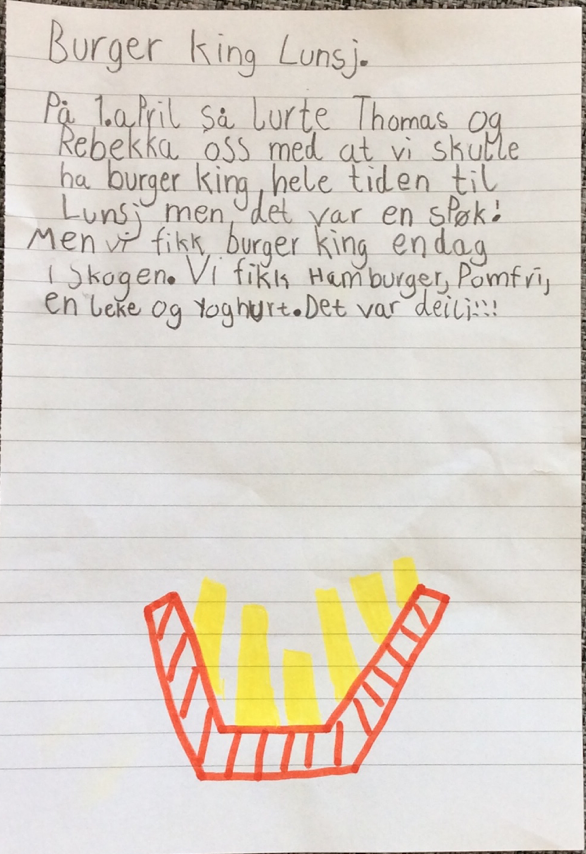 Burger king Lunsj.
På 1.april så lurte Thomas og
Rebekka oss med at vi skulle
ha burger king hele tiden til
Lunsj men det var en spøk!
Men vi fikk burger king en dag
i skogen. Vi fikk Hamburger, Pomfri,
en leke og Yoghurt. Det var deilij!!!